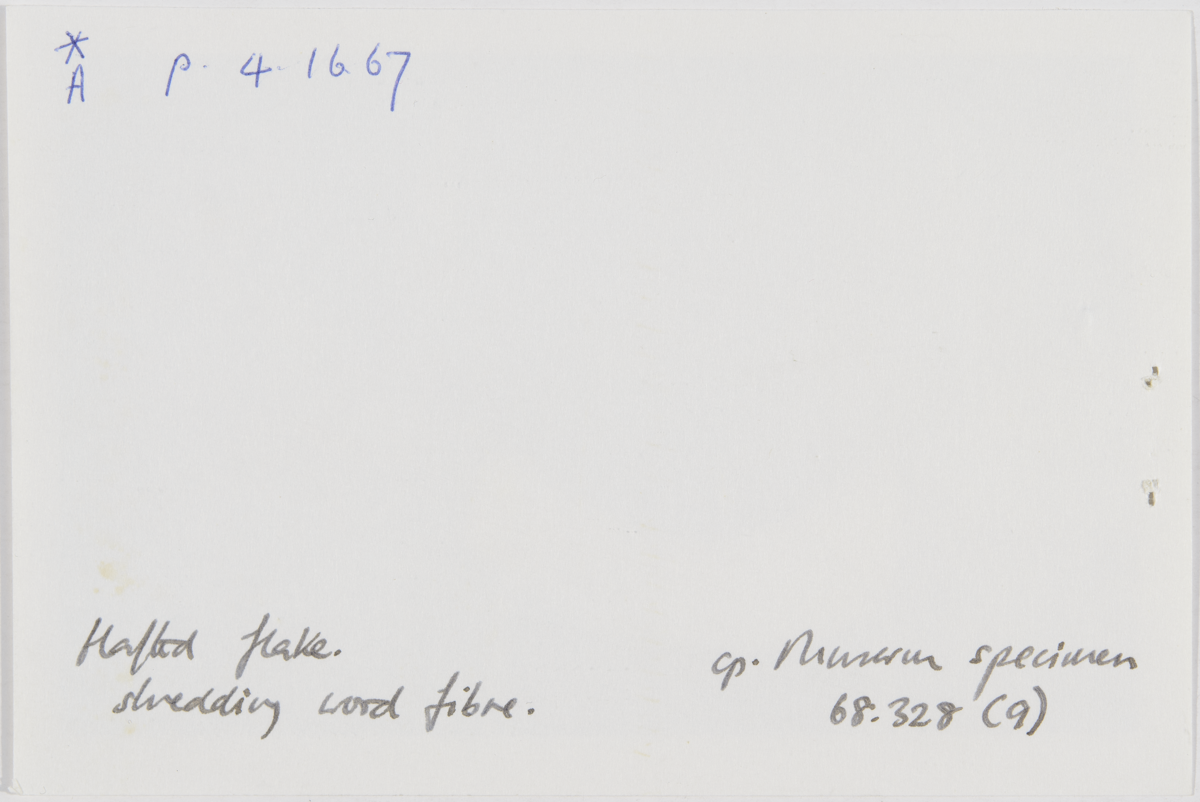 *
A P. 4. 1667
Hafted flake.
shredding wood fibre.
cp. Museum specimen
68.328 (9)